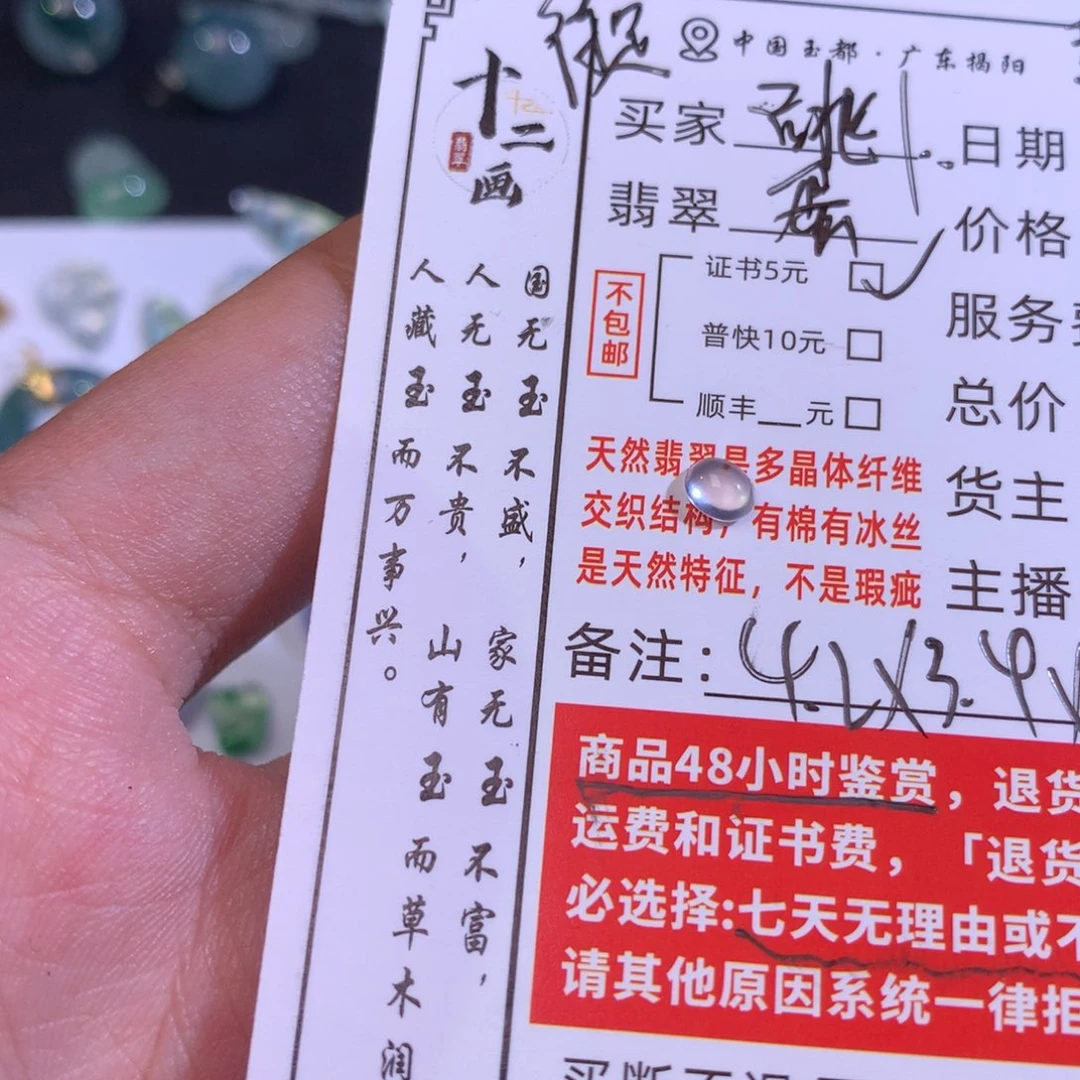 中国玉都·广东揭阳
十二画
翡翠
买家
日期
翡翠
价格
不包邮
证书5元
普快10元
顺丰__元
服务费
总价
货主
主播
天然翡翠是多晶体纤维
交织结构，有棉有冰丝
是天然特征，不是瑕疵
备注：4.2X3.9
商品48小时鉴赏，退货
运费和证书费，「退货
必选择:七天无理由或不
请其他原因系统一律拒
国无玉不盛，家无玉不富，
人无玉不贵，山有玉而草木润
人藏玉而万事兴。